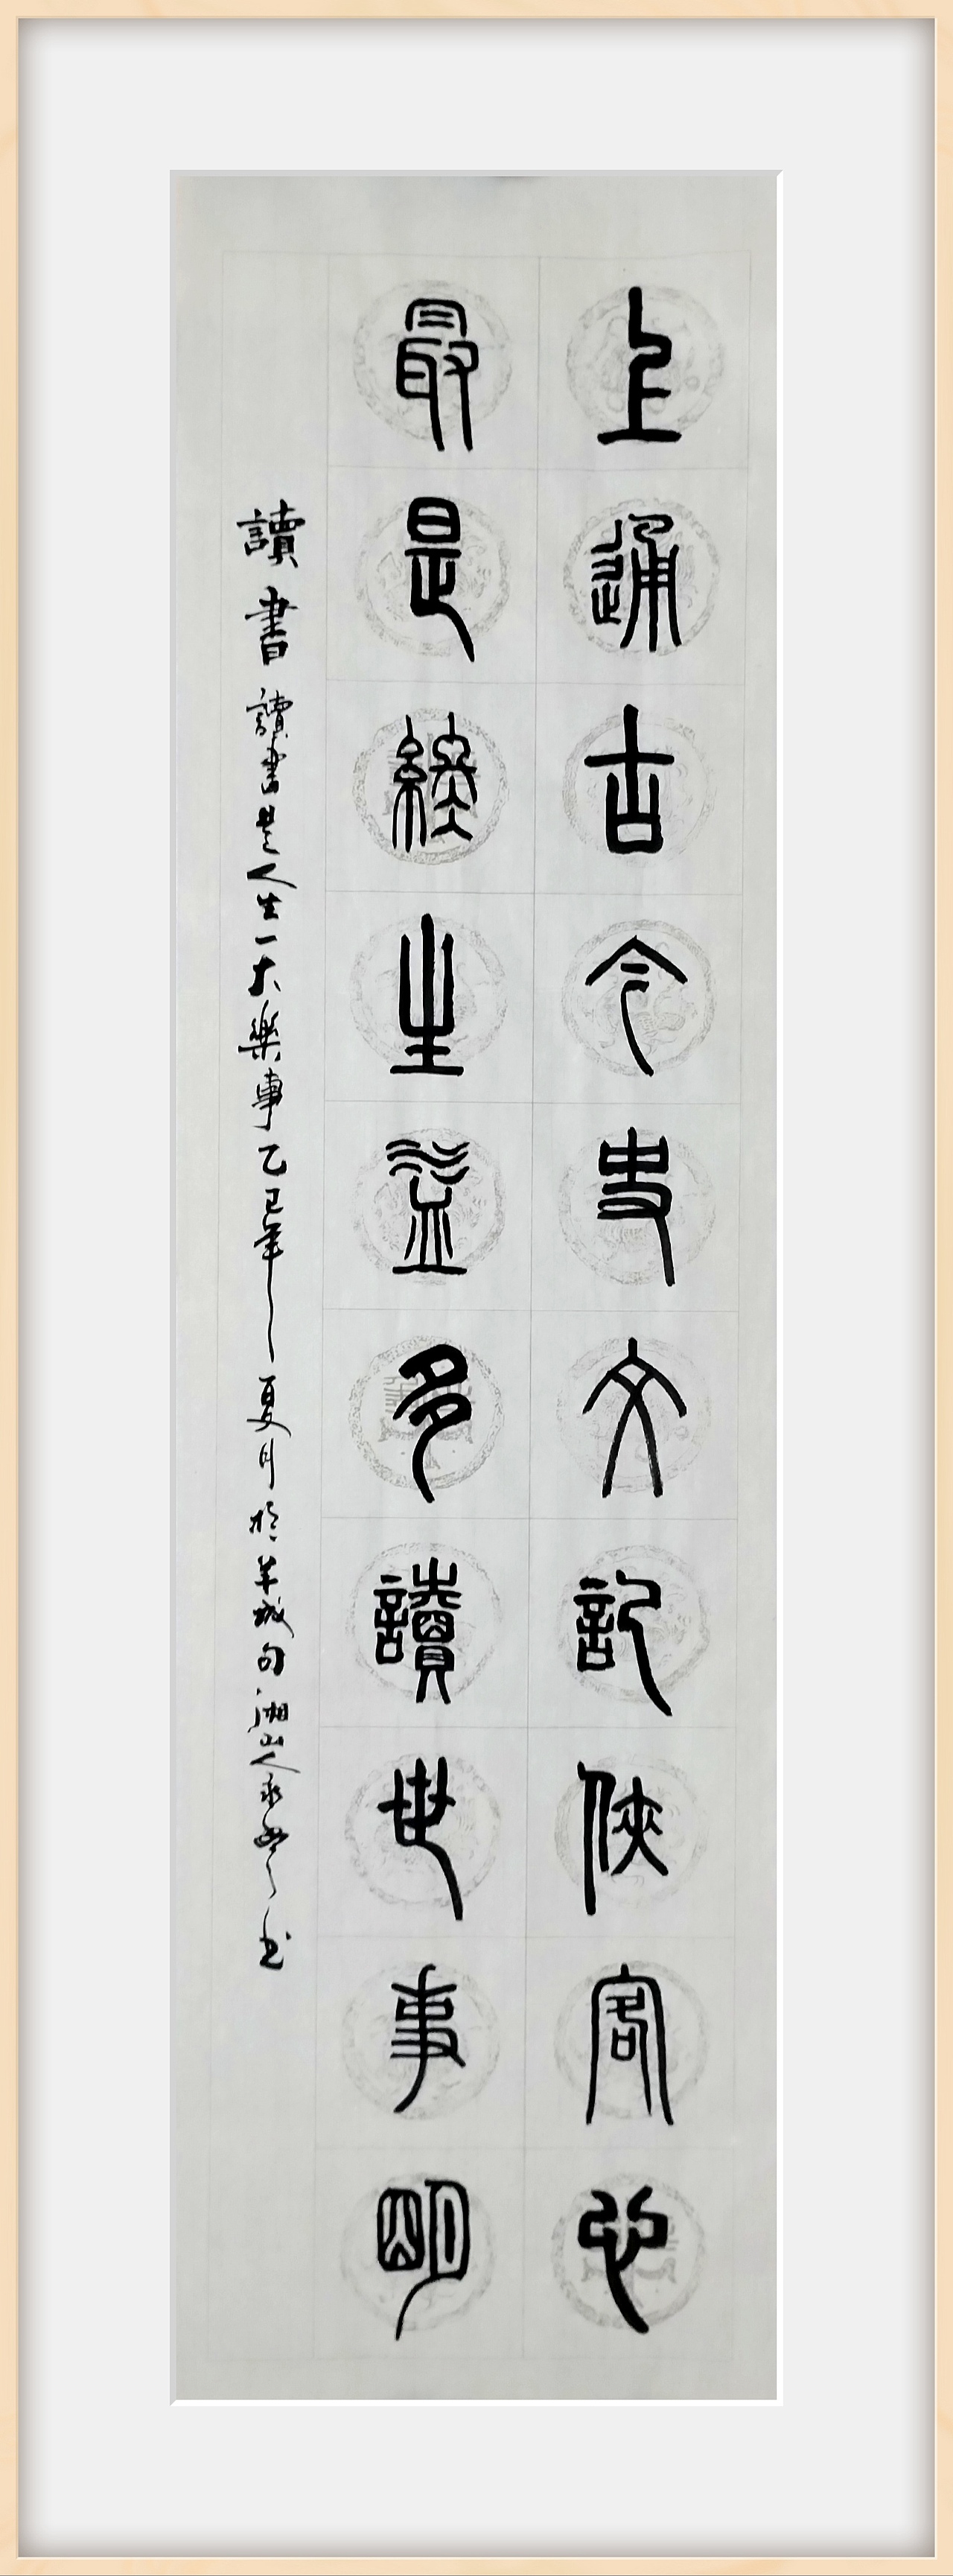 上通古今史文記俠客也
最是終生益多讀世事明
讀書 讀書是人生一大樂事乙巳年夏月於羊城句湘山人永 书